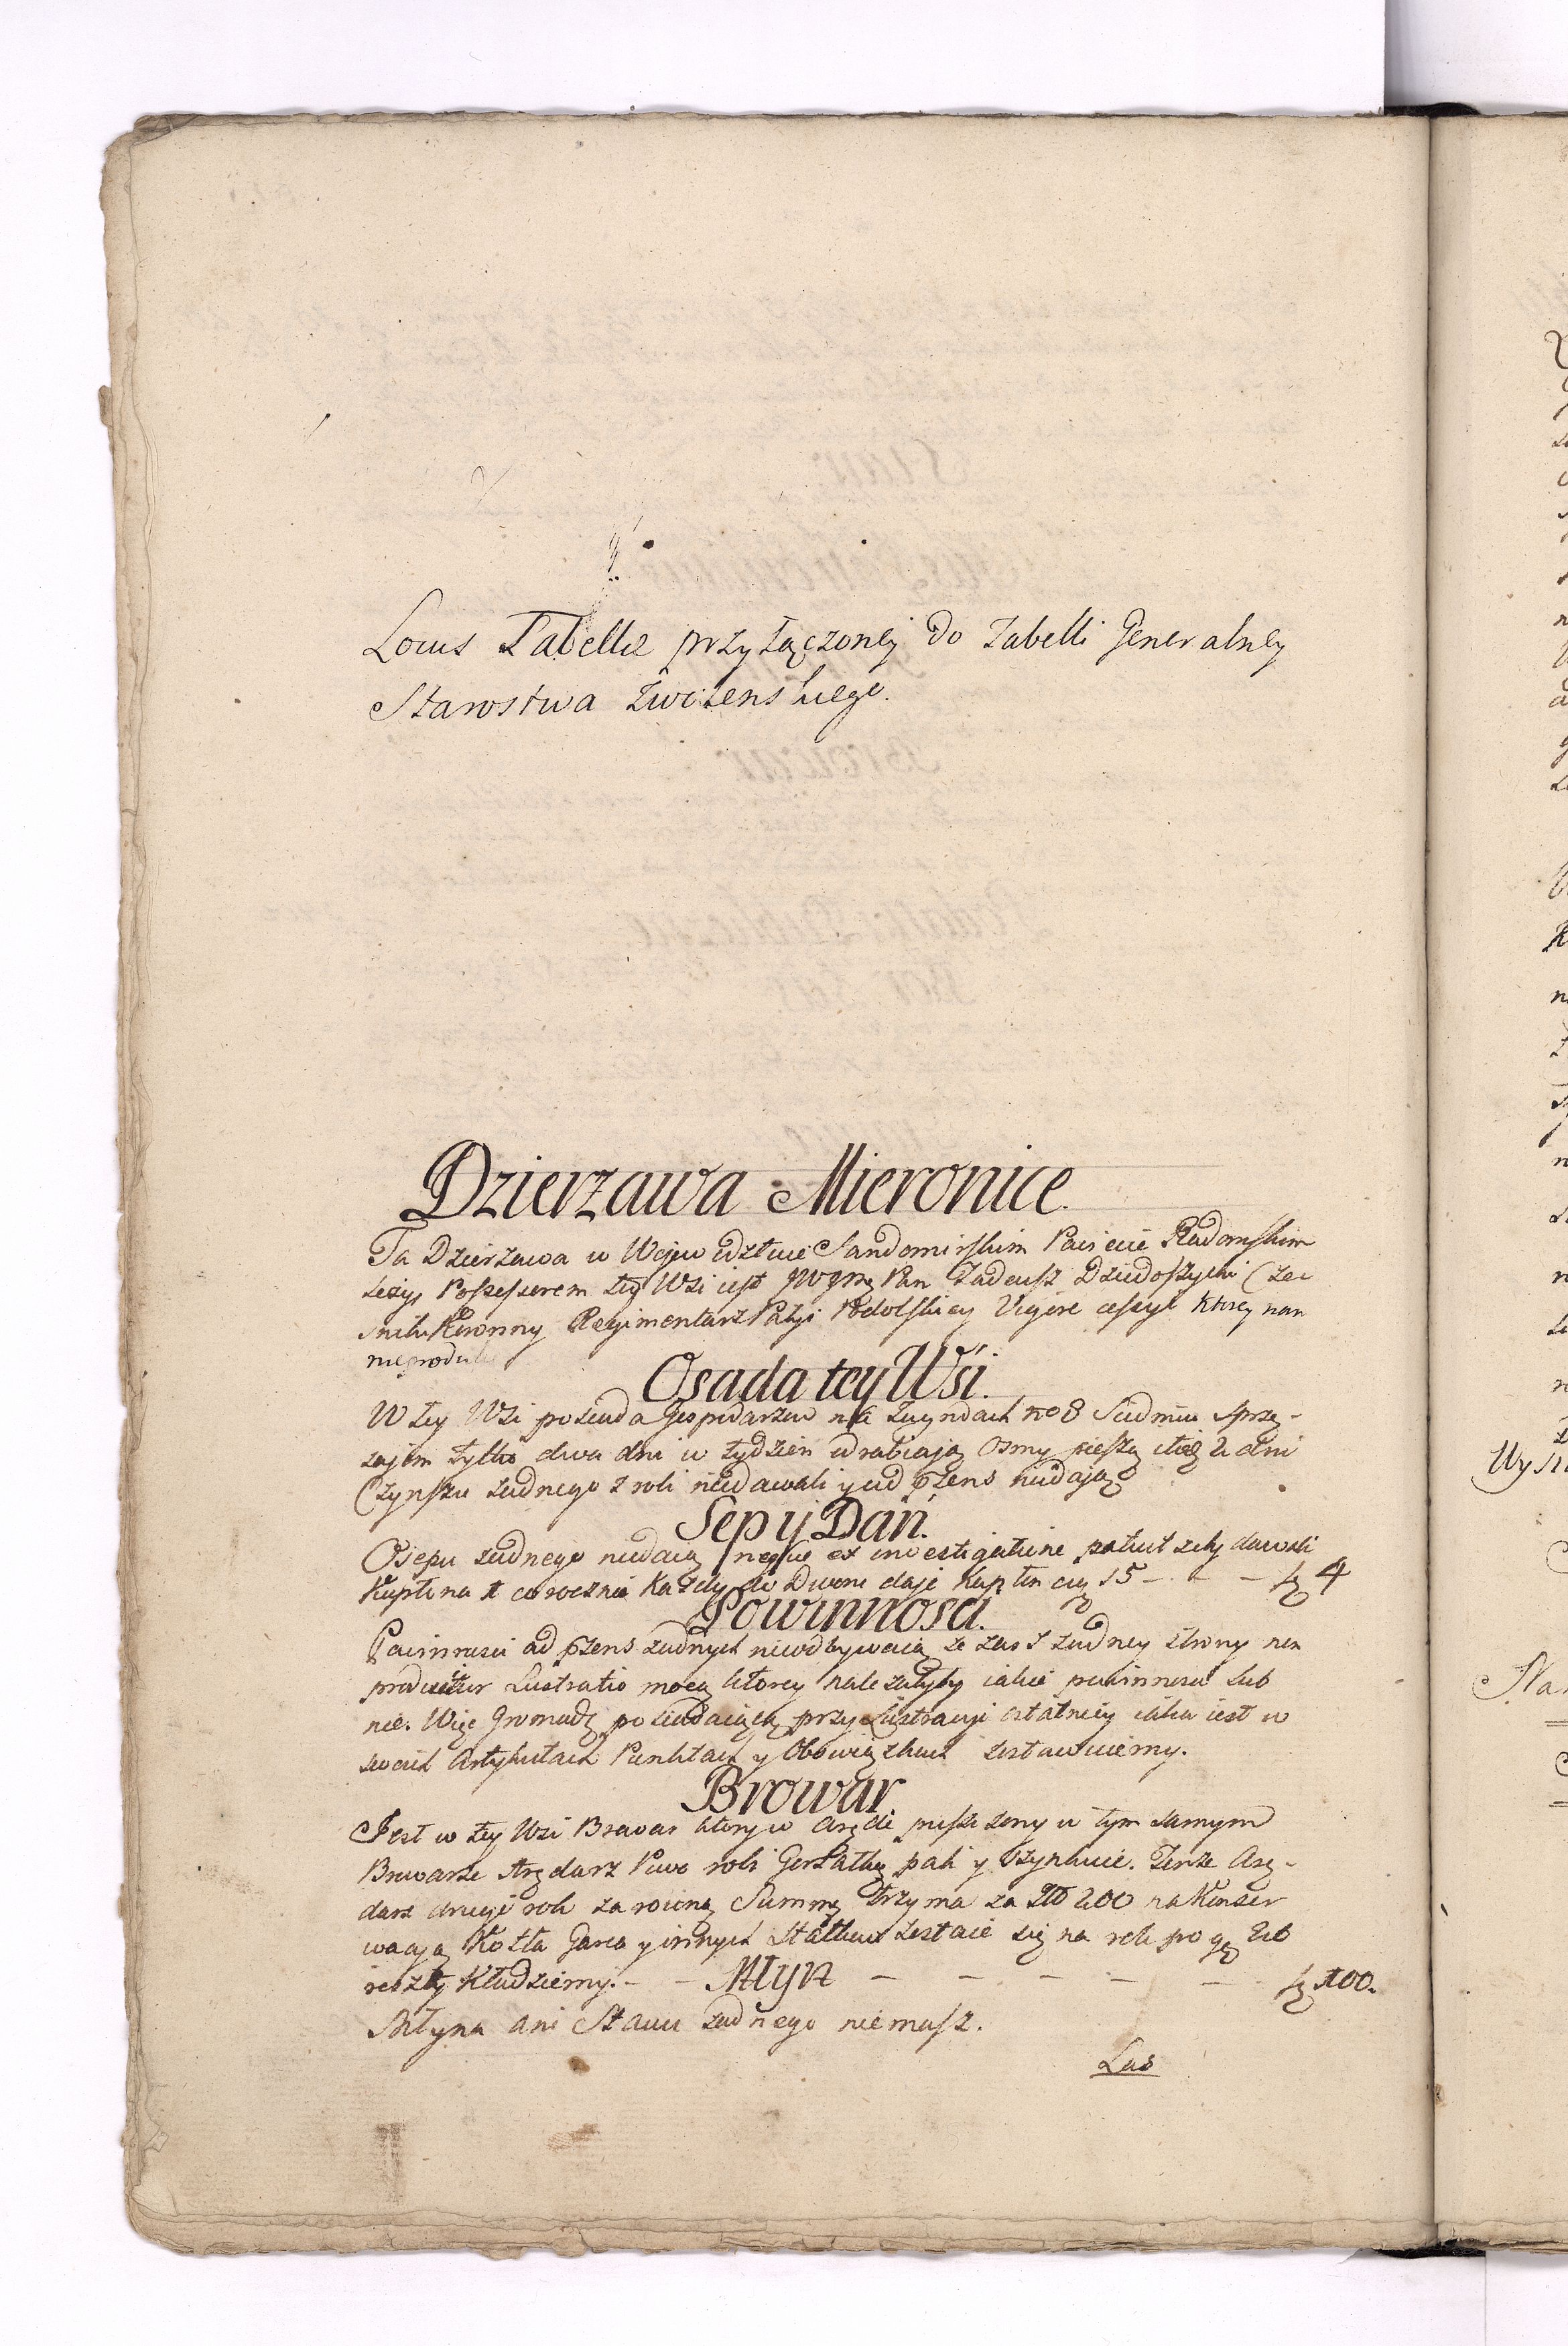 Locus Tabellæ przyłączoney do Tabelli Generalney
Starostwa Zwolenskiego.
Dzierzawa Mieronice.
Ta Dzierzawa w Wojewodztwie Sandomirskim Pawiecie Radomskim
lezy, Possessorem tey Wsi iest JWJMę Pan Tadeusz Dzieduszycki Cze
snik Koronny Regimentarz Partyi Podolskiey Vigore cessyi ktorey nam
nieprodu
Osada tey Wsi.
W tey Wsi posiada Gospodarzow na Zagrodach No 8 Siedmiu sprzę-
zajem tylko dwa dni w tydzien odrabiaią Osmy pieszą 2 dni
Czynszu zadnego z roli niedawali y ad pzens niedają
Sep y Dań.
Osepu zadnego niedaią neque ex investigatione patuit zeby dawali
Kapłona 1 corocznie Kazdy do Dworu daje Kapłon 15 - - - 4
Powinnosci.
Powinnosci ad pzens zadnych nieodbywaią ze zas z zadney strony non
producitur Lustratio mocą ktorey nalezałyby iakie powinnosci lub
nie. Więc Gromadę posiadaiącą przy Lustracyi ostatniey iaka iest w
swoich Artykułach Punktach y Obowiązkach zostawuiemy.
Browar
Jest w tey Wsi Browar ktory w Aręde puszczony w tym samym
Browarze Arędarz Piwo robi Gorzałkę pali y szynkuie. Tenze Arę-
darz drugi rok za roczną Summę trzyma za Zło 200 na Konser
wacyą Kotła Garca y innych Statkow zostaie się na rok po
reszty Kładziemy. - - Młyn - - - - - 100.
Młyna ani Stawu zadnego niemasz.
Las